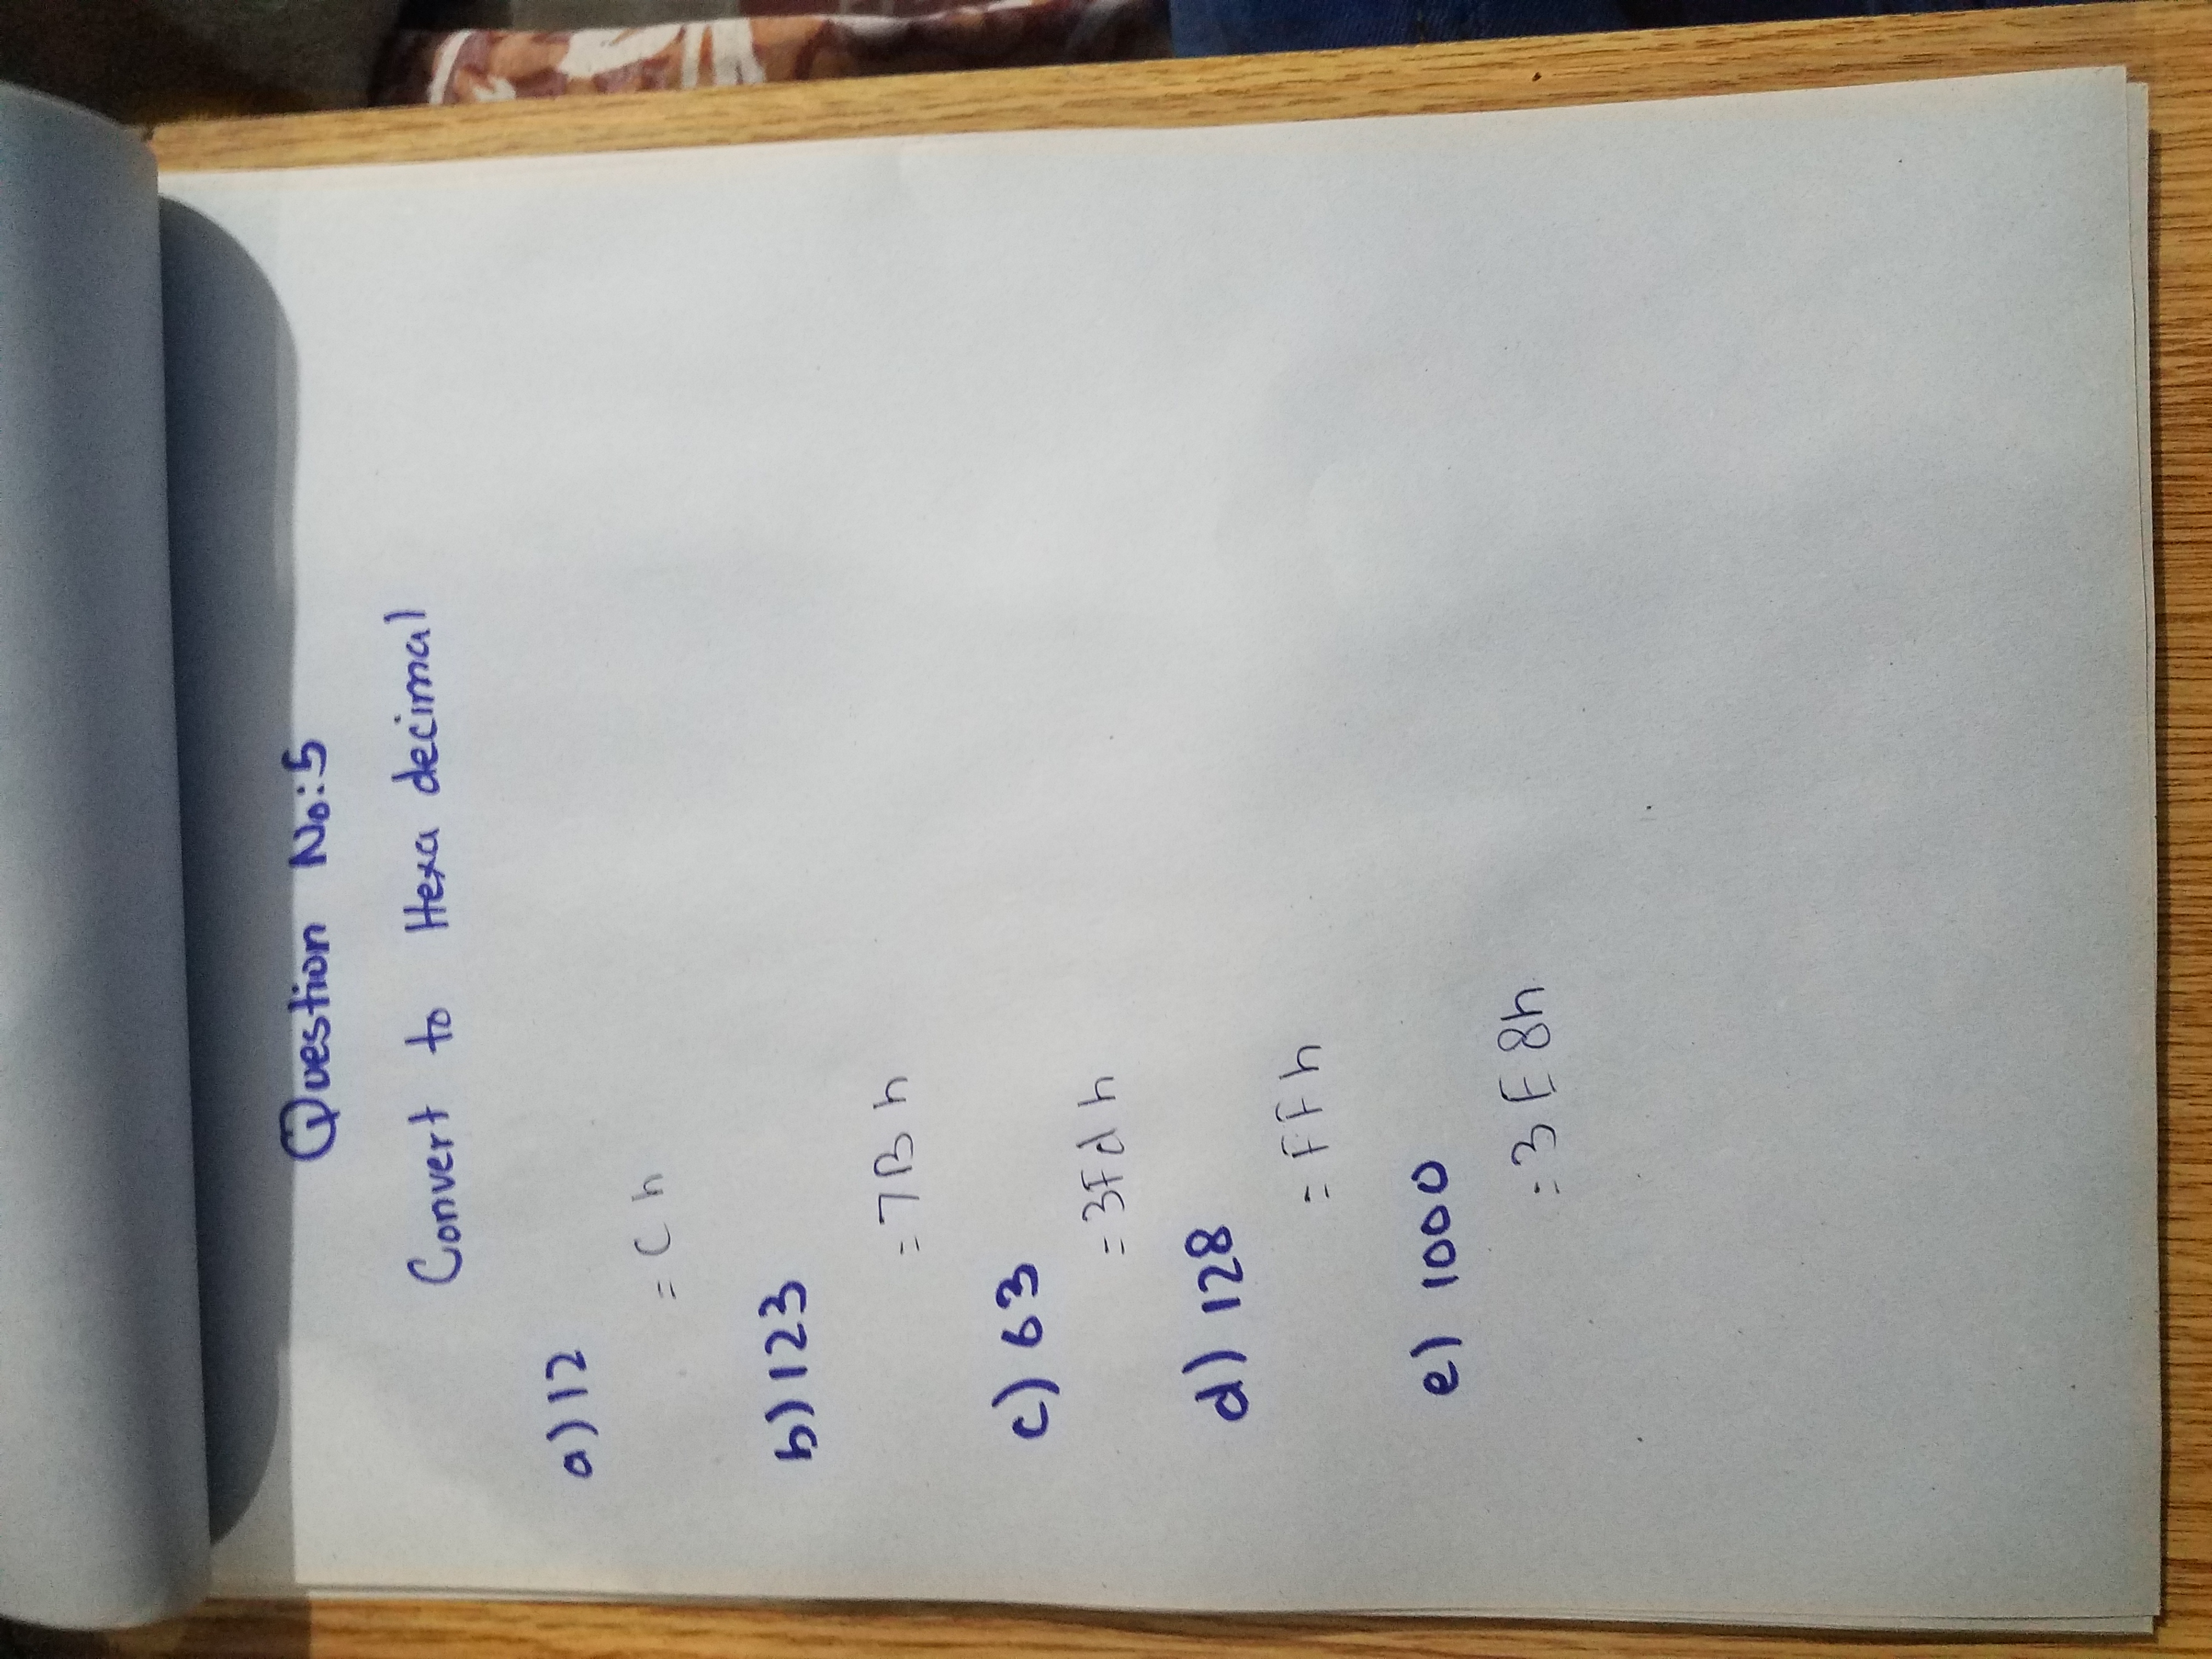 Question No:5
Convert to Hexa decimal
a) 12
= C h
b) 123
= 7B h
c) 63
= 3Fd h
d) 128
= FFh
e) 1000
= 3E8h